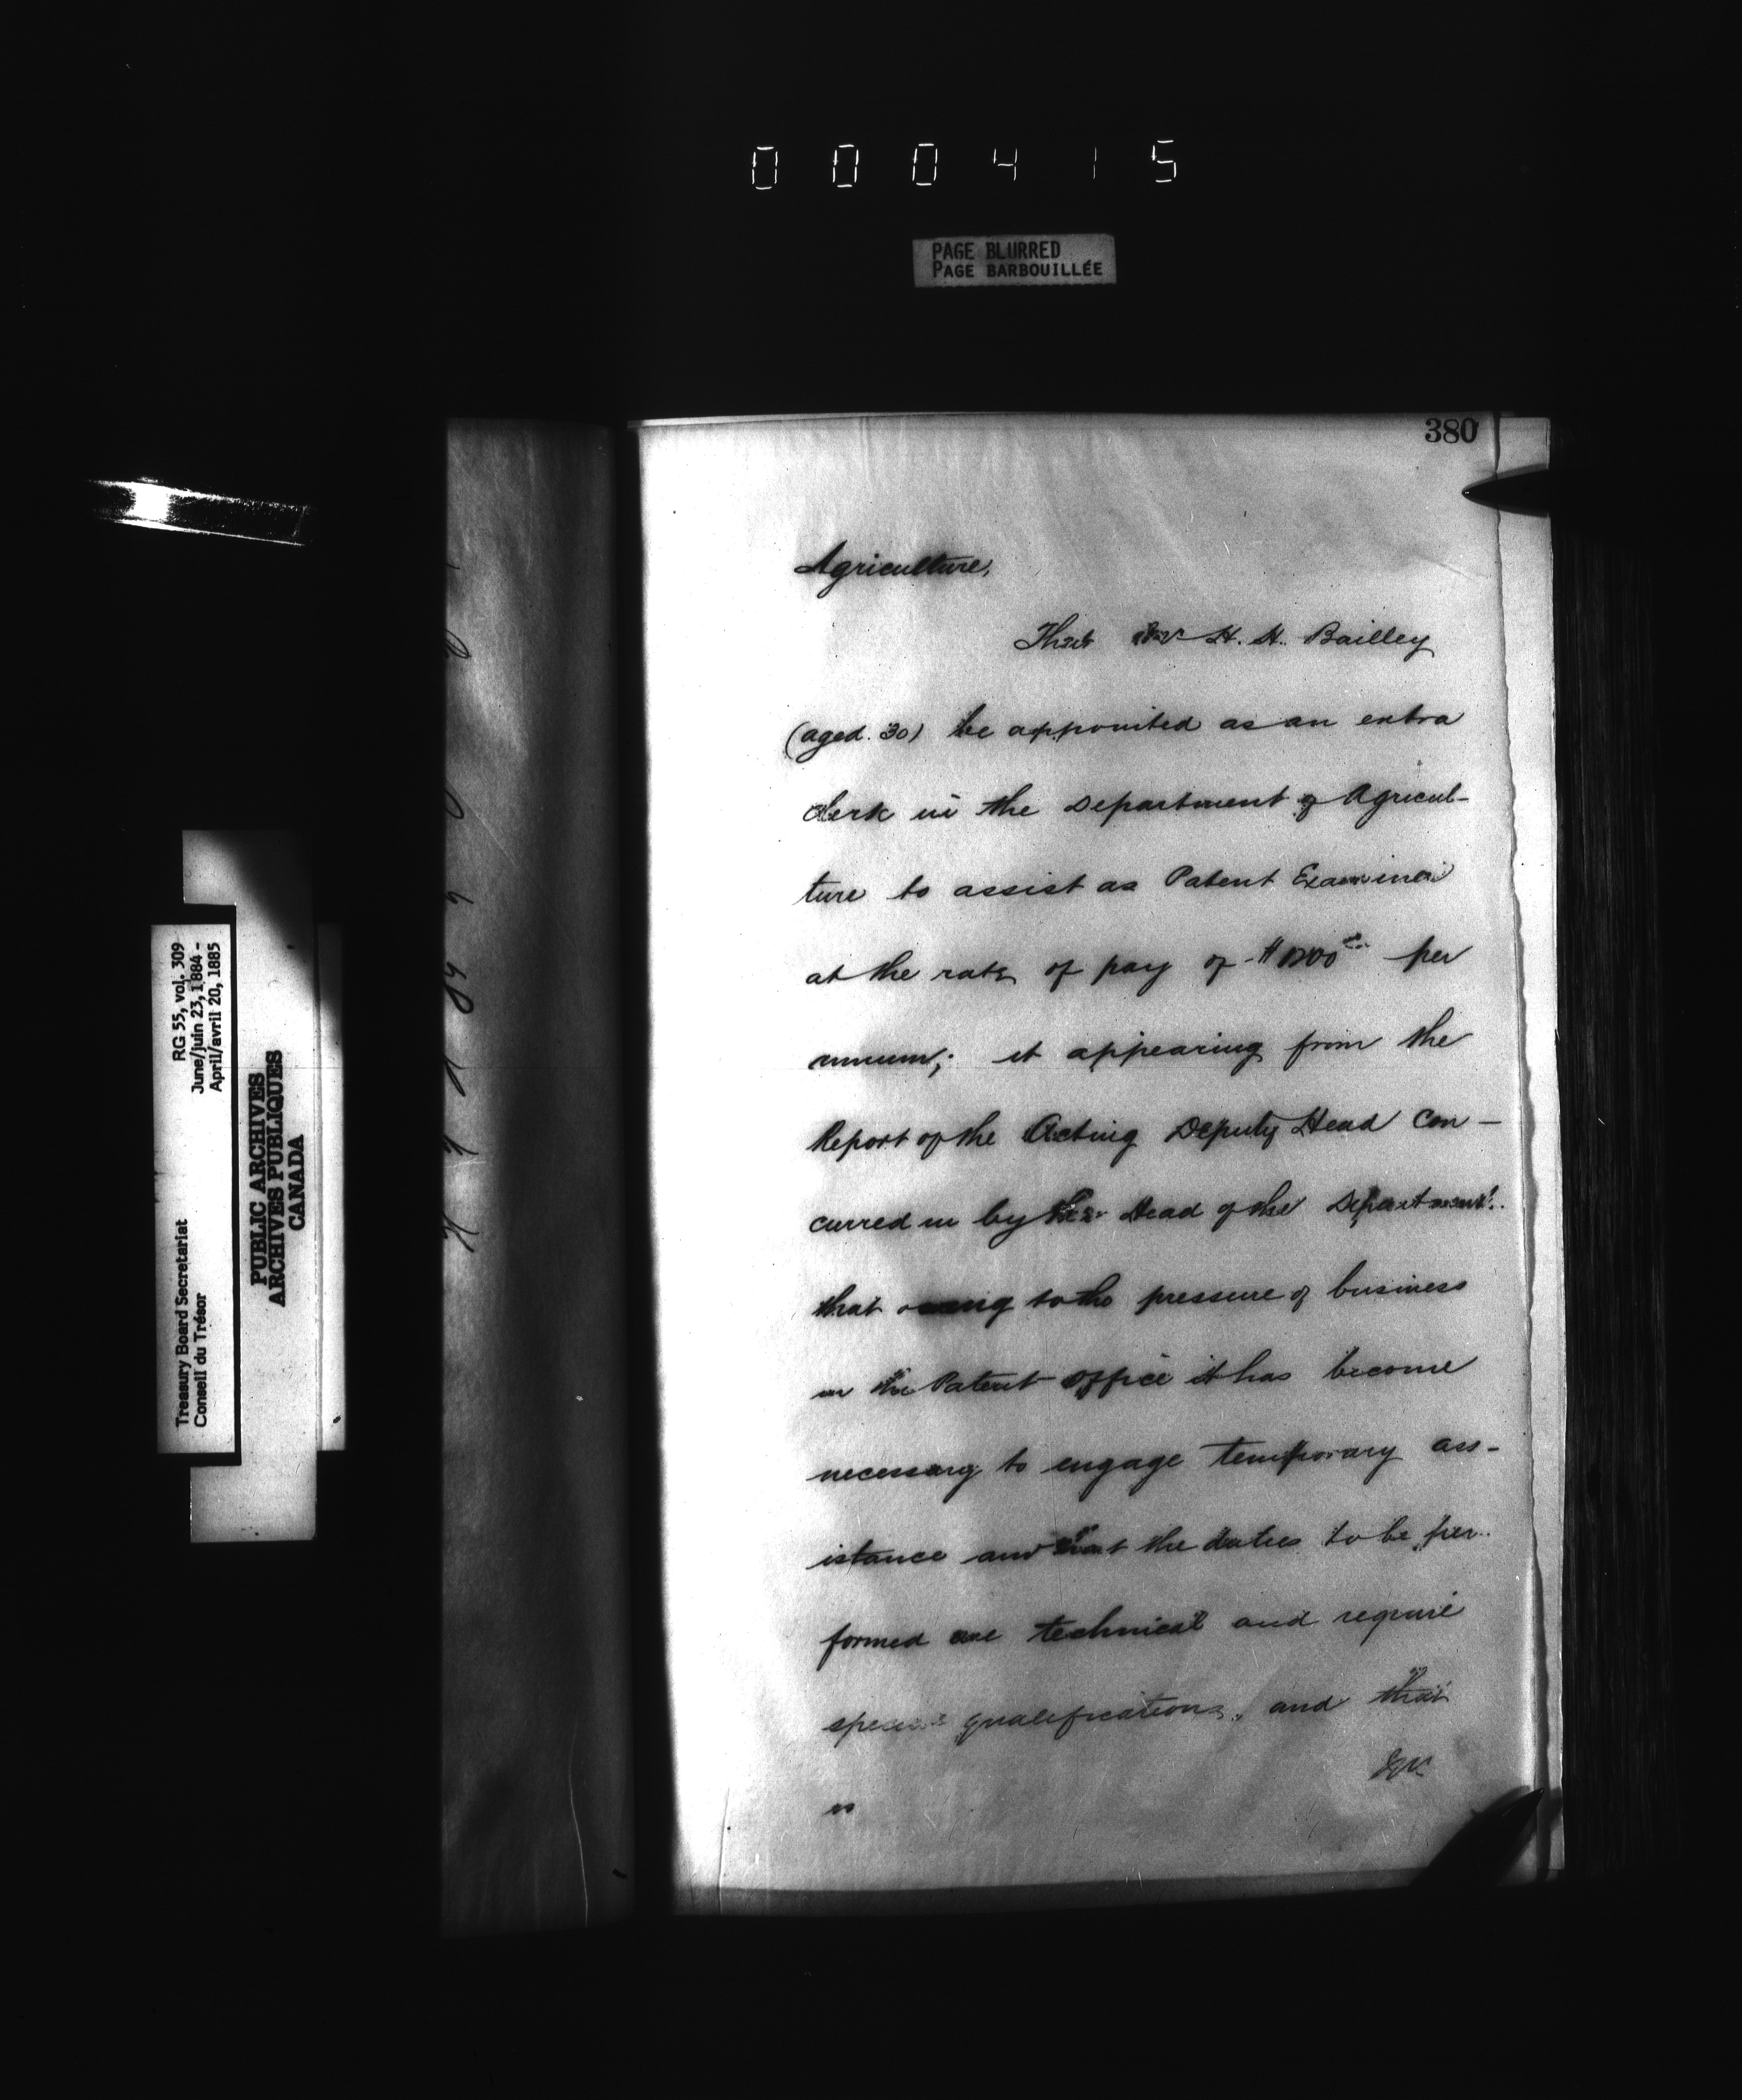 000415
PAGE BLURRED
PAGE BARBOUILLÉE
380
Agriculture,
That Mr H. H. Bailley
(aged 30) be appointed as an extra
clerk in the Department of Agricul-
ture to assist as Patent Examiner
at the rate of pay of per
annum; it appearing from the
Report of the Acting Deputy Head con-
curred in by the Head of the Department
that owing to the pressure of business
in the Patent Office it has become
necessary to engage temporary ass-
istance and that the duties to be per-
formed are technical and require
special qualifications, and that
RG 55, vol. 309
June/juin 23, 1884 -
April/avril 20, 1885
Treasury Board Secretariat
Conseil du Trésor
PUBLIC ARCHIVES
ARCHIVES PUBLIQUES
CANADA